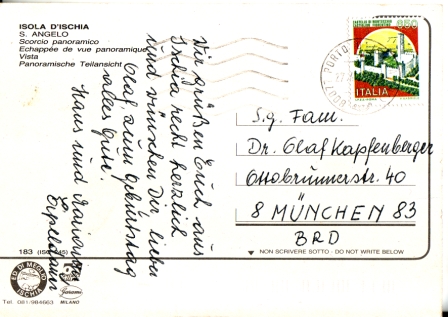 ISOLA D'ISCHIA
S. ANGELO
Scorcio panoramico
Echappée de vue panoramique
Vista
Panoramische Teilansicht
Wir grüßen Euch aus
Ischia recht herzlich
und wünschen Dir, lieber
Olaf zum Geburtstag
alles Gute.
Hans und
650
ITALIA
S.g. Fam.
Dr. Olaf Kapfenberger
Ottobrunnerstr. 40
8 MÜNCHEN 83
BRD
183
NON SCRIVERE SOTTO - DO NOT WRITE BELOW
ISCHIA
MILANO
Tel. 081/984663